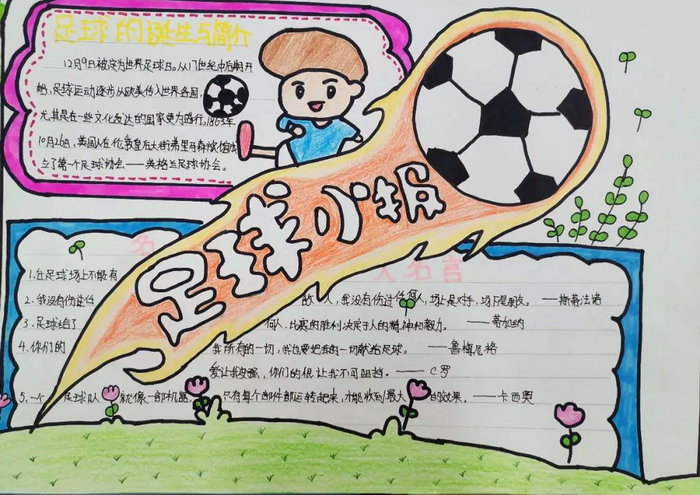 足球的诞生与简介
12月9日被定为世界足球日。从17世纪中后期开
始，足球运动逐步从欧美传入世界各国，
尤其是在一些文化发达的国家更为盛行。1863年
10月26日，英国人在伦敦皇后大街弗里马森旅馆成
立了第一个足球协会——英格兰足球协会。
足球小报
名人名言
1.在足球场上不能有
2.我没有伤过任 敌人，我没有伤过任何人，场上是对手，场下是朋友。——斯蒂法诺
3.足球给了 何人，比赛的胜利决定于人的精神和毅力。——蒂加纳
4.你们的 我所有的一切，我也要把我的一切献给足球。——鲁梅尼格
爱让我坚强，你们的恨让我不可阻挡。——C罗
5.一个 足球队 就像一部机器，只有每个部件都运转起来，才能收到最大的效果。——卡西奥